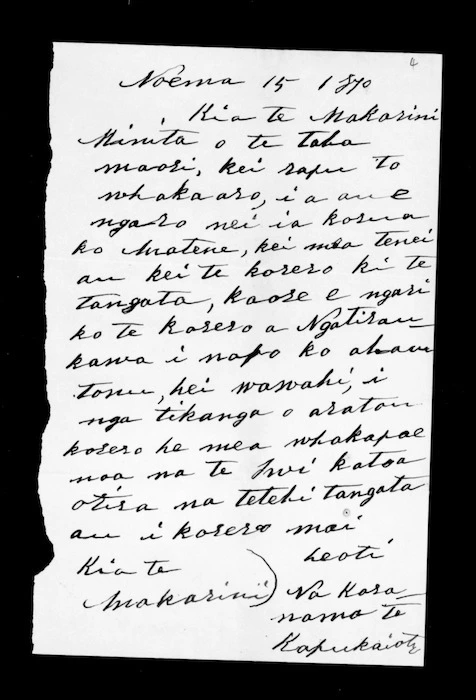 4
Noema 15 1870
Kia te Makarini
Minita o te taha
maori, kei rapu to
whakaaro, i a au e
ngaro nei ia korua
ko Matene, kei mea tenei
au kei te korero ki te
tangata, kaore e ngari
ko te korero a Ngatirau-
kawa i napo ko ahau
tonu, hei wawahi, i
nga tikanga o aratou
korero he mea whakapae
noa na te Iwi katoa
otira na tetehi tangata
au i korero mai
heoti
Kia te
Makarini) Na Kara-
nama te
Kapukaiotu